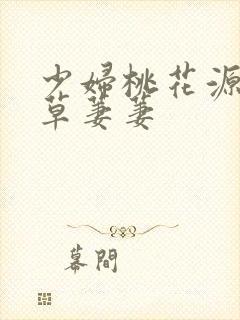 少婦桃花源
草萋萋
幕間